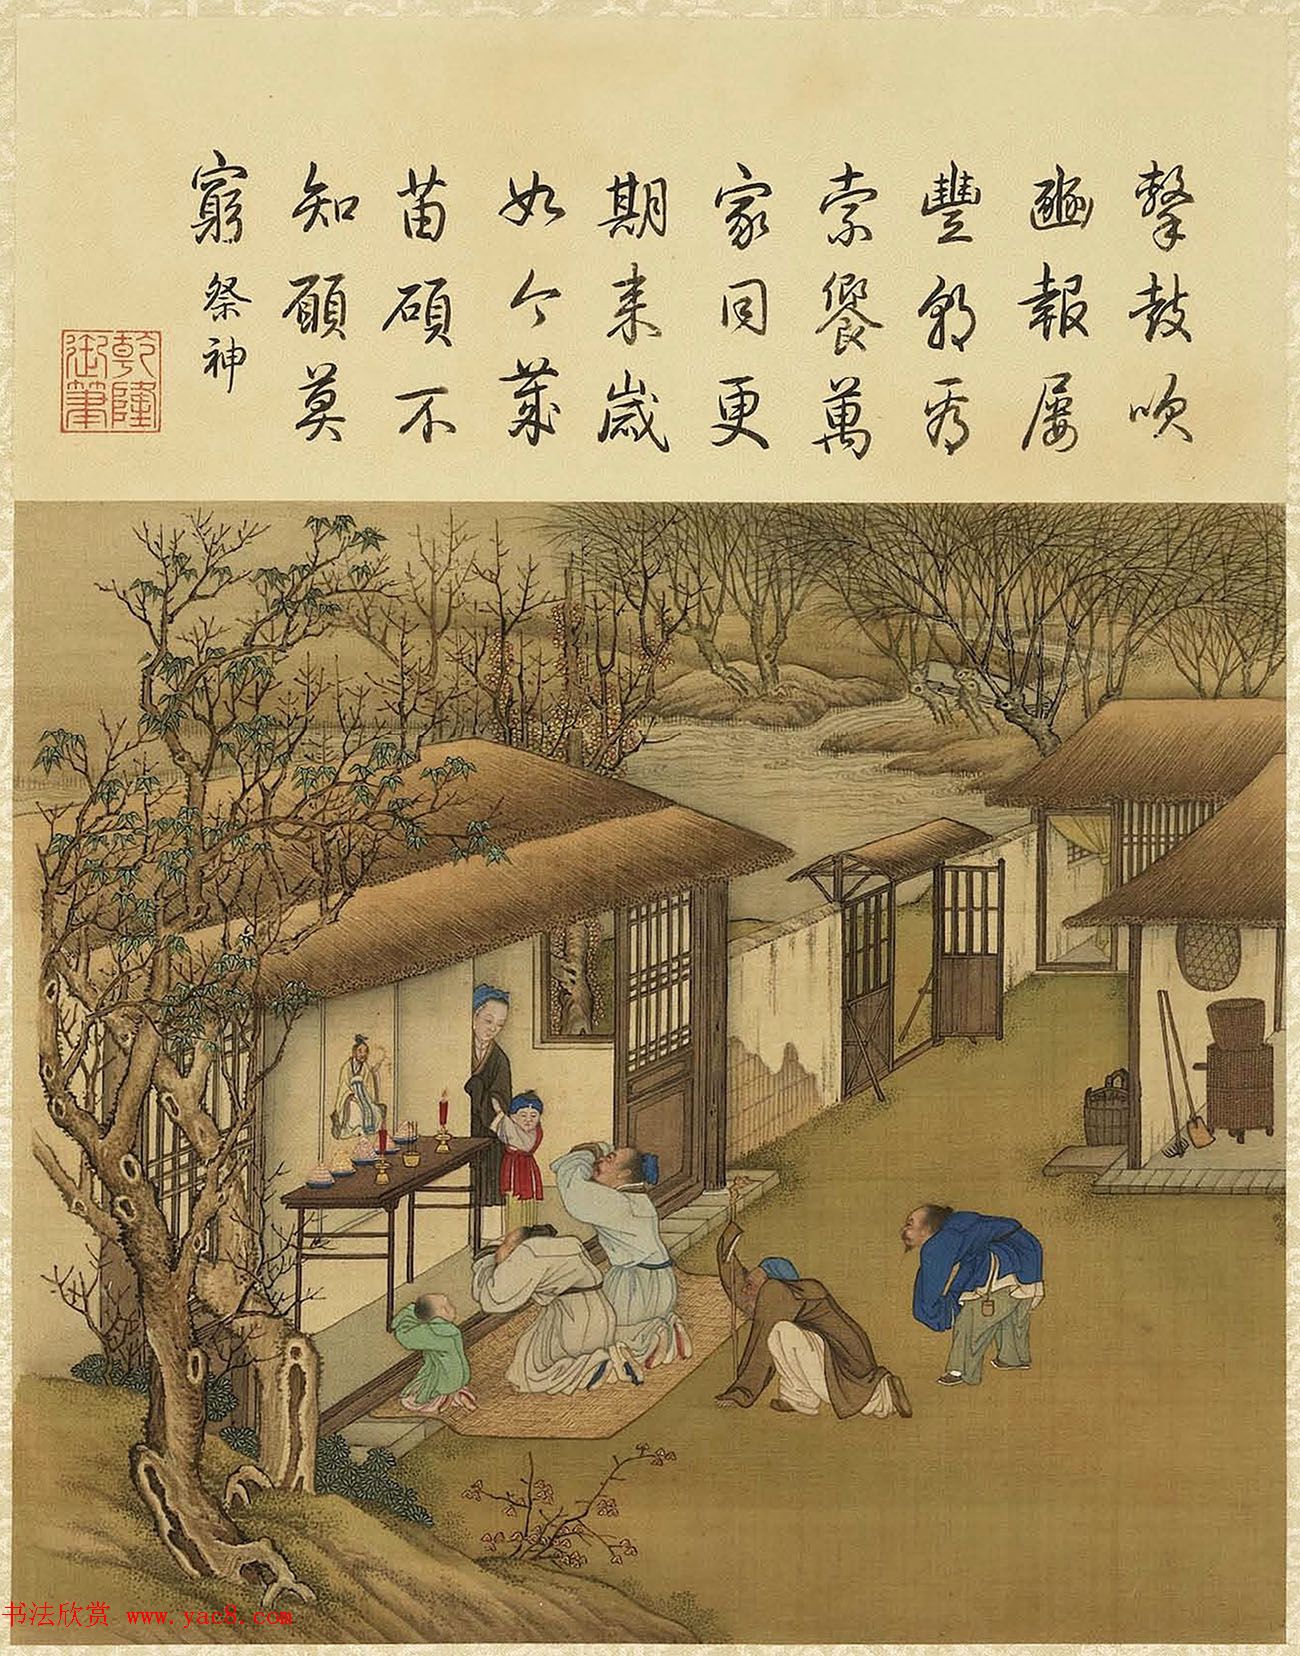 擊鼓吹
豳報屢
豐為
索饗萬
家同更
期来歲
如今歲
苗碩不
知願莫
窮 祭神
乾隆
御筆
书法欣赏 www.yac8.com